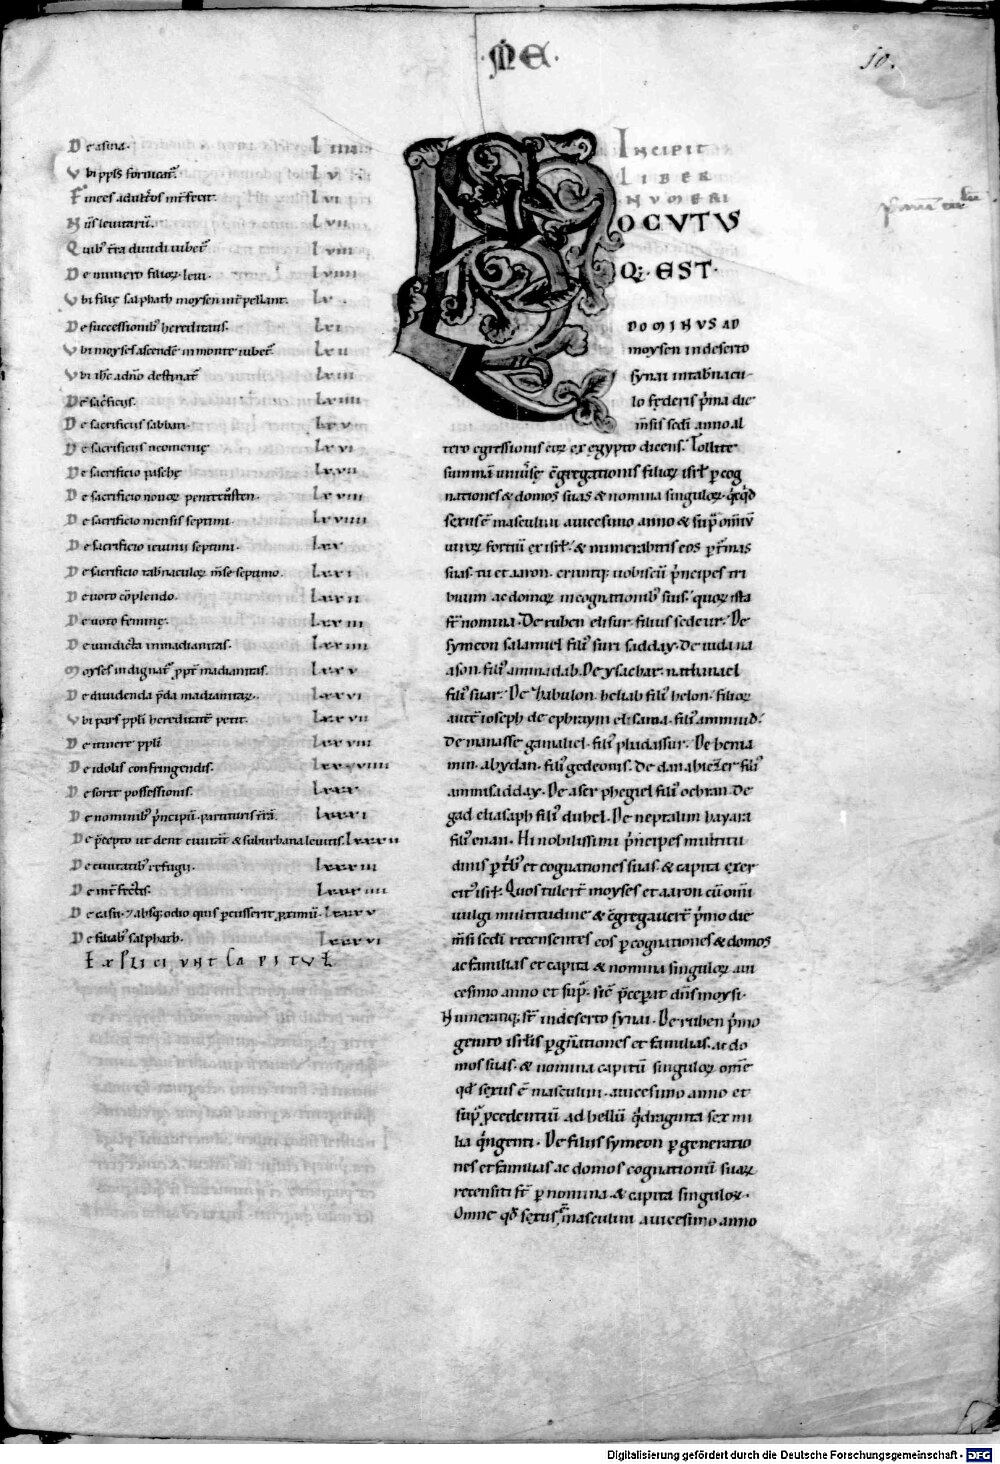 ·M̄E·
50.
De asina. Liiii
Vbi ppl's fornicat᷒. Lv
Finees adult̄os int̄fecit. Lvi
Nūs leuitarū. Lvii
Quib᷒ t̄ra diuidi iubet᷒. Lviii
De numero filioꝝ leui. Lviiii
Vbi filię salphath moysen int̄pellant. Lx
De successionib᷒ hereditatis. Lxi
Vbi moyses ascende᷒ in monte iubet᷒. Lxii
Vbi ih̄e a dn̄o destinat᷒ Lxiii
De sac̄ficiis. Lxiiii
De sacrificiis sabbati. Lxv
De sacrificiis neomenię Lxvi
De sacrificio paschę Lxvii
De sacrificio nouoꝝ pentecosten. Lxviii
De sacrificio mensis septimi. Lxviiii
De sacrificio ieiunii septimi. Lxx
De sacrificio tab̄naculoꝝ m̄se septimo. Lxxi
De uoto cōplendo. Lxxii
De uoto feminę. Lxxiii
De uindicta in madianitas. Lxxiiii
Moyses indignat᷒ ꝓpt̄ madianitas. Lxxv
De diuidenda p̄da madianitaꝝ. Lxxvi
Vbi pars ppl'i hereditatē petit. Lxxvii
De itinere ppl'i Lxxviii
De idolis confringendis. Lxxviiii
De sorte possessionis. Lxxx
De nominib᷒ p̄ncipū partituris t̄rā. Lxxxi
De p̄cepto ut dent ciuitat̄ & suburbana leuitis. Lxxxii
De ciuitatib᷒ refugii. Lxxxiii
De int̄fectis. Lxxxiiii
De casu ⁊ absq; odio quis ꝑcusserit ꝓximū. Lxxxv
De filiab᷒ salphath. Lxxxvi
Expliciunt Capitul̄
Incipit
Liber
Numeri
LOCVTVS
Q; EST·
DOMINVS AD
moysen in deserto
synai in tab̄nacu-
lo fęderis p̄ma die
m̄sis sc̄di anno al
tero egressionis eoꝝ ex egypto dicens. Tollite
summā uniu̅sę cgregationis filioꝝ isrl' ꝑ cog
nationes & domos suas & nomina singuloꝝ. q̇cq̇d
sexus ē masculini a uicesimo anno & sup̄ omīū
uiroꝝ fortiū ex isrl'. & numerabitis eos ꝑ t̄mas
suas. tu et aaron. eruntq; uobiscū p̄ncipes tri
buum ac domoꝝ in cognationib᷒ suis. quoꝝ ista
st̄ nomina. De ruben elisur. filius sedeur. De
symeon salamiel fili᷒ suri sadday. De iuda na
ason. fili᷒ aminadab. De ysachar. nathanael
fili᷒ suar. De zabulon. heliab fili᷒ helon. filioꝝ
autē ioseph de ephraym elisama. fili᷒ ammiud.
De manasse gamaliel. fili᷒ phadassur. De benia
min. abydan. fili᷒ gedeonis. De dan abiezer fili᷒
amimsadday. De aser phegiel fili᷒ ochran. De
gad eliasaph fili᷒ duhel. De neptalim hayara
fili᷒ enan. Hi nobilissimi p̄ncipes multitu
dinis ꝑ t̄b᷒ et cognationes suas. & capita exer
cit᷒ isrl'. Quos tulert̄ moyses et aaron cū om̄i
uulgi multitudine & cgregauert̄ p̄mo die
m̄si sc̄di recensentes eos ꝑ cognationes & domos
ac familias et capita & nomina singuloꝝ. a ui
cesimo anno et sup̄. sic̄ p̄ceperat dn̄s moysi.
Numeratiq; st̄ in deserto synai. De ruben p̄mo
genito isrl'is ꝑ gn̄ationes et familias. ac do
mos suas. & nomina capitū singuloꝝ om̄e
qđ sexus ē masculini. a uicesimo anno et
sup̄ ꝓcedentiū ad bellū q̇draginta sex mi
lia q̇ngenti. De filiis symeon ꝑ generatio
nes et familias ac domos cognationū suaꝝ
recensiti st̄ ꝑ nomina & capita singuloꝝ.
Omne qđ sexus ē masculini a uicesimo anno
Digitalisierung gefördert durch die Deutsche Forschungsgemeinschaft - DFG